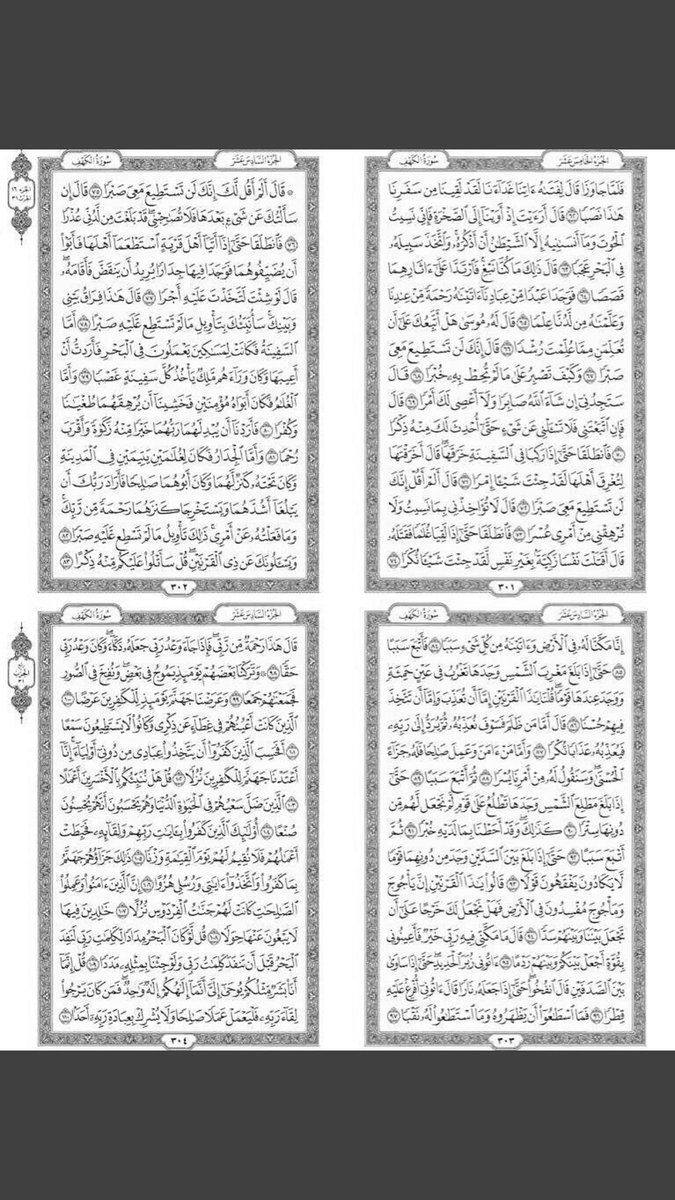 الجزء الخامس عشر
سورة الكهف
فلما جاوزا قال لفتىه ءاتنا غداءنا لقد لقينا من سفرنا
هذا نصبا ٦٢ قال أرءيت إذ أوينا إلى الصخرة فإني نسيت
الحوت وما أنسىنيه إلا الشيطن أن أذكره واتخذ سبيله
في البحر عجبا ٦٣ قال ذلك ما كنا نبغ فارتدا على ءاثارهما
قصصا ٦٤ فوجدا عبدا من عبادنا ءاتينه رحمة من عندنا
وعلمنه من لدنا علما ٦٥ قال له موسى هل أتبعك على أن
تعلمن مما علمت رشدا ٦٦ قال إنك لن تستطيع معي
صبرا ٦٧ وكيف تصبر على ما لم تحط به خبرا ٦٨ قال
ستجدني إن شاء الله صابرا ولا أعصي لك أمرا ٦٩ قال
فإن اتبعتني فلا تسءلني عن شيء حتى أحدث لك منه ذكرا
٧٠ فانطلقا حتى إذا ركبا في السفينة خرقها قال أخرقتها
لتغرق أهلها لقد جئت شيءا إمرا ٧١ قال ألم أقل إنك
لن تستطيع معي صبرا ٧٢ قال لا تؤاخذني بما نسيت ولا
ترهقني من أمري عسرا ٧٣ فانطلقا حتى إذا لقيا غلما فقتله
قال أقتلت نفسا زكية بغير نفس لقد جئت شيءا نكرا ٧٤
٣٠١
الجزء السادس عشر
سورة الكهف
الجزء ١٦
الحزب ٣١
۞ قال ألم أقل لك إنك لن تستطيع معي صبرا ٧٥ قال إن
سألتك عن شيء بعدها فلا تصحبني قد بلغت من لدني عذرا
٧٦ فانطلقا حتى إذا أتيا أهل قرية استطعما أهلها فأبوا
أن يضيفوهما فوجدا فيها جدارا يريد أن ينقض فأقامه
قال لو شئت لتخذت عليه أجرا ٧٧ قال هذا فراق بيني
وبينك سأنبئك بتأويل ما لم تستطع عليه صبرا ٧٨ أما
السفينة فكانت لمسكين يعملون في البحر فأردت أن
أعيبها وكان وراءهم ملك يأخذ كل سفينة غصبا ٧٩ وأما
الغلم فكان أبواه مؤمنين فخشينا أن يرهقهما طغينا
وكفرا ٨٠ فأردنا أن يبدلهما ربهما خيرا منه زكوة وأقرب
رحما ٨١ وأما الجدار فكان لغلمين يتيمين في المدينة
وكان تحته كنز لهما وكان أبوهما صلحا فأراد ربك أن
يبلغا أشدهما ويستخرجا كنزهما رحمة من ربك
وما فعلته عن أمري ذلك تأويل ما لم تسطع عليه صبرا ٨٢
ويسءلونك عن ذي القرنين قل سأتلوا عليكم منه ذكرا ٨٣
٣٠٢
الجزء السادس عشر
سورة الكهف
إنا مكنا له في الأرض وءاتينه من كل شيء سببا ٨٤ فأتبع سببا
٨٥ حتى إذا بلغ مغرب الشمس وجدها تغرب في عين حمئة
ووجد عندها قوما قلنا يذا القرنين إما أن تعذب وإما أن تتخذ
فيهم حسنا ٨٦ قال أما من ظلم فسوف نعذبه ثم يرد إلى ربه
فيعذبه عذابا نكرا ٨٧ وأما من ءامن وعمل صلحا فله جزاء
الحسنى وسنقول له من أمرنا يسرا ٨٨ ثم أتبع سببا ٨٩ حتى
إذا بلغ مطلع الشمس وجدها تطلع على قوم لم نجعل لهم من
دونها سترا ٩٠ كذلك وقد أحطنا بما لديه خبرا ٩١ ثم
أتبع سببا ٩٢ حتى إذا بلغ بين السدين وجد من دونهما قوما
لا يكادون يفقهون قولا ٩٣ قالوا يذا القرنين إن يأجوج
ومأجوج مفسدون في الأرض فهل نجعل لك خرجا على أن
تجعل بيننا وبينهم سدا ٩٤ قال ما مكني فيه ربي خير فأعينوني
بقوة أجعل بينكم وبينهم ردما ٩٥ ءاتوني زبر الحديد حتى إذا ساوى
بين الصدفين قال انفخوا حتى إذا جعله نارا قال ءاتوني أفرغ عليه
قطرا ٩٦ فما اسطعوا أن يظهروه وما استطعوا له نقبا ٩٧
٣٠٣
الجزء السادس عشر
سورة الكهف
قال هذا رحمة من ربي فإذا جاء وعد ربي جعله دكاء وكان وعد ربي
حقا ٩٨ ۞ وتركنا بعضهم يومئذ يموج في بعض ونفخ في الصور
فجمعنهم جمعا ٩٩ وعرضنا جهنم يومئذ للكفرين عرضا ١٠٠
الذين كانت أعينهم في غطاء عن ذكري وكانوا لا يستطيعون سمعا
١٠١ أفحسب الذين كفروا أن يتخذوا عبادي من دوني أولياء إنا
أعتدنا جهنم للكفرين نزلا ١٠٢ قل هل ننبئكم بالأخسرين أعملا
١٠٣ الذين ضل سعيهم في الحيوة الدنيا وهم يحسبون أنهم يحسنون
صنعا ١٠٤ أولئك الذين كفروا بءايت ربهم ولقائه فحبطت
أعملهم فلا نقيم لهم يوم القيمة وزنا ١٠٥ ذلك جزاؤهم جهنم
بما كفروا واتخذوا ءايتي ورسلي هزوا ١٠٦ إن الذين ءامنوا وعملوا
الصلحت كانت لهم جنت الفردوس نزلا ١٠٧ خلدين فيها
لا يبغون عنها حولا ١٠٨ قل لو كان البحر مدادا لكلمت ربي لنفد
البحر قبل أن تنفد كلمت ربي ولو جئنا بمثله مددا ١٠٩ قل إنما
أنا بشر مثلكم يوحى إلي أنما إلهكم إله وحد فمن كان يرجوا
لقاء ربه فليعمل عملا صلحا ولا يشرك بعبادة ربه أحدا ١١٠
٣٠٤